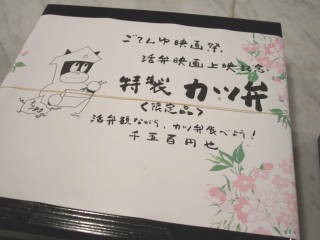 ごてんゆ映画祭
活弁映画上映記念
特製 カツ弁
〈限定品〉
活弁観ながら、カツ弁食べよう！
千五百円也